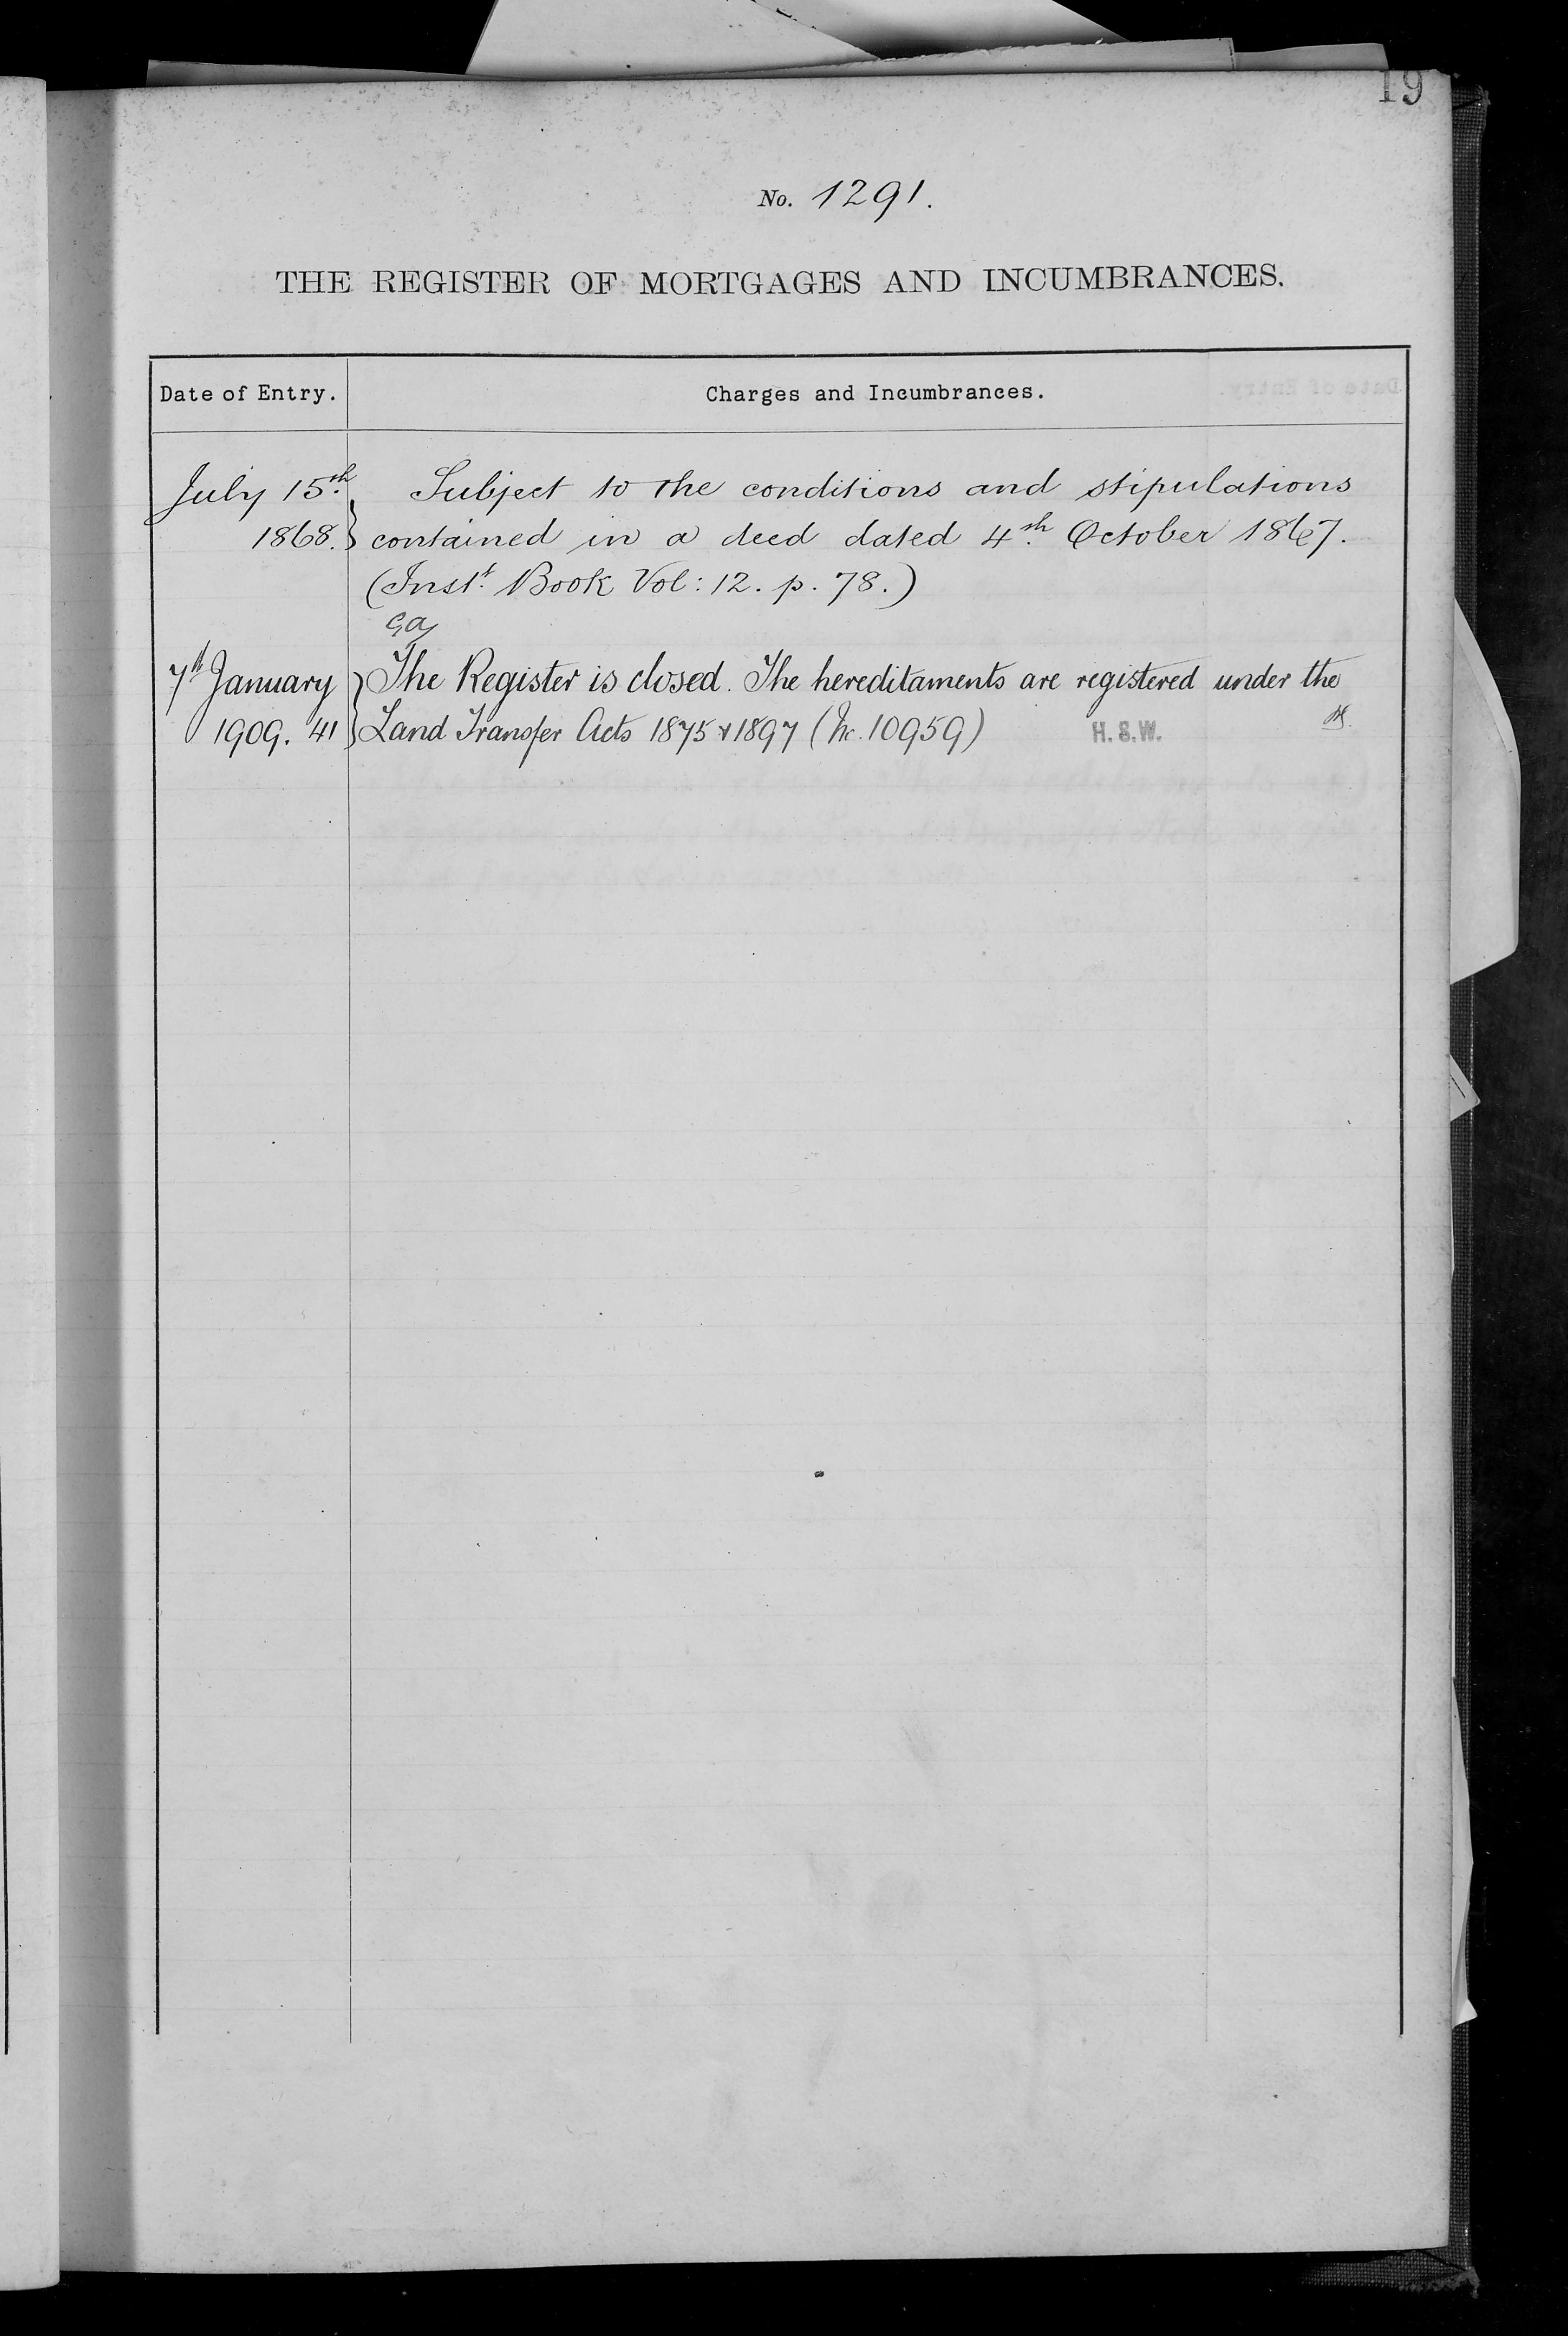 19
No. 1291.
THE REGISTER OF MORTGAGES AND INCUMBRANCES.
Date of Entry. Charges and Incumbrances.
July 15th Subject to the conditions and stipulations
1868. contained in a deed dated 4th October 1867.
(Inst. Book Vol: 12. p. 78.)
7th January The Register is closed. The hereditaments are registered under the
1909. 41 Land Transfer Acts 1875 & 1897 (No. 10959) H.S.W.